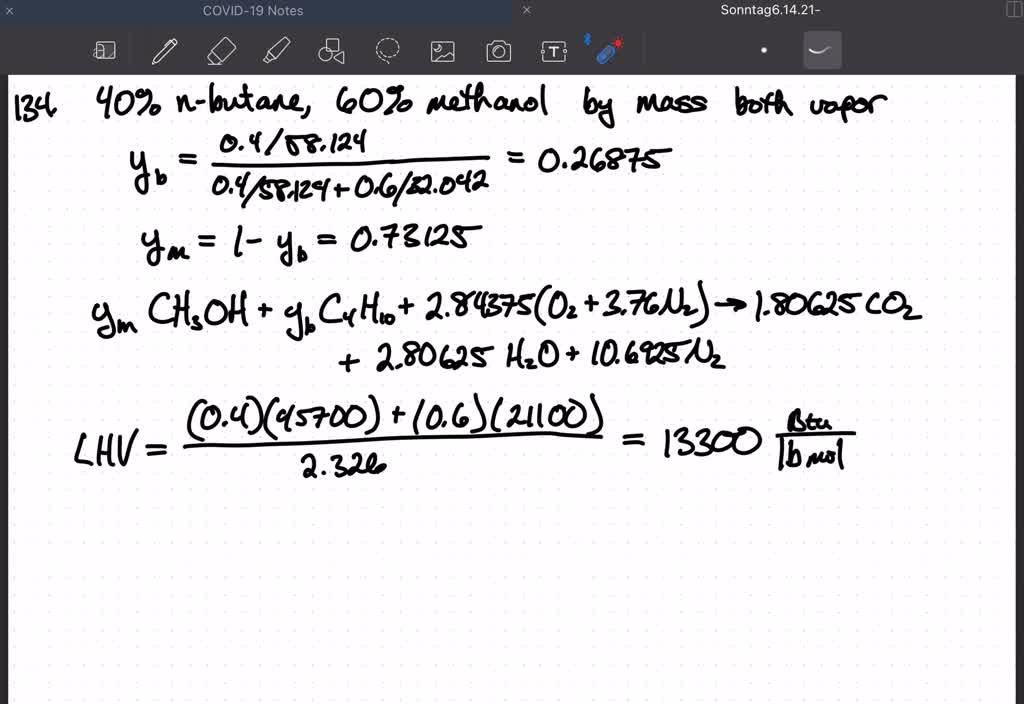 COVID-19 Notes
Sonntag6.14.21-
134. 40% n-butane, 60% methanol by mass both vapor
y_b = (0.4/58.124) / (0.4/58.124 + 0.6/32.042) = 0.26875
y_m = 1 - y_b = 0.73125
y_m CH3OH + y_b C4H10 + 2.84375(O2 + 3.76N2) → 1.80625 CO2
+ 2.80625 H2O + 10.6925 N2
LHV = ((0.4)(45700) + (0.6)(21100)) / 2.326 = 13300 Btu/lbmol